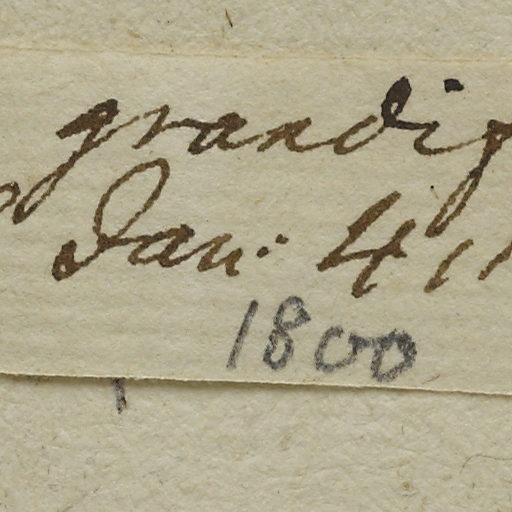 grandif
Jan: 4
1800